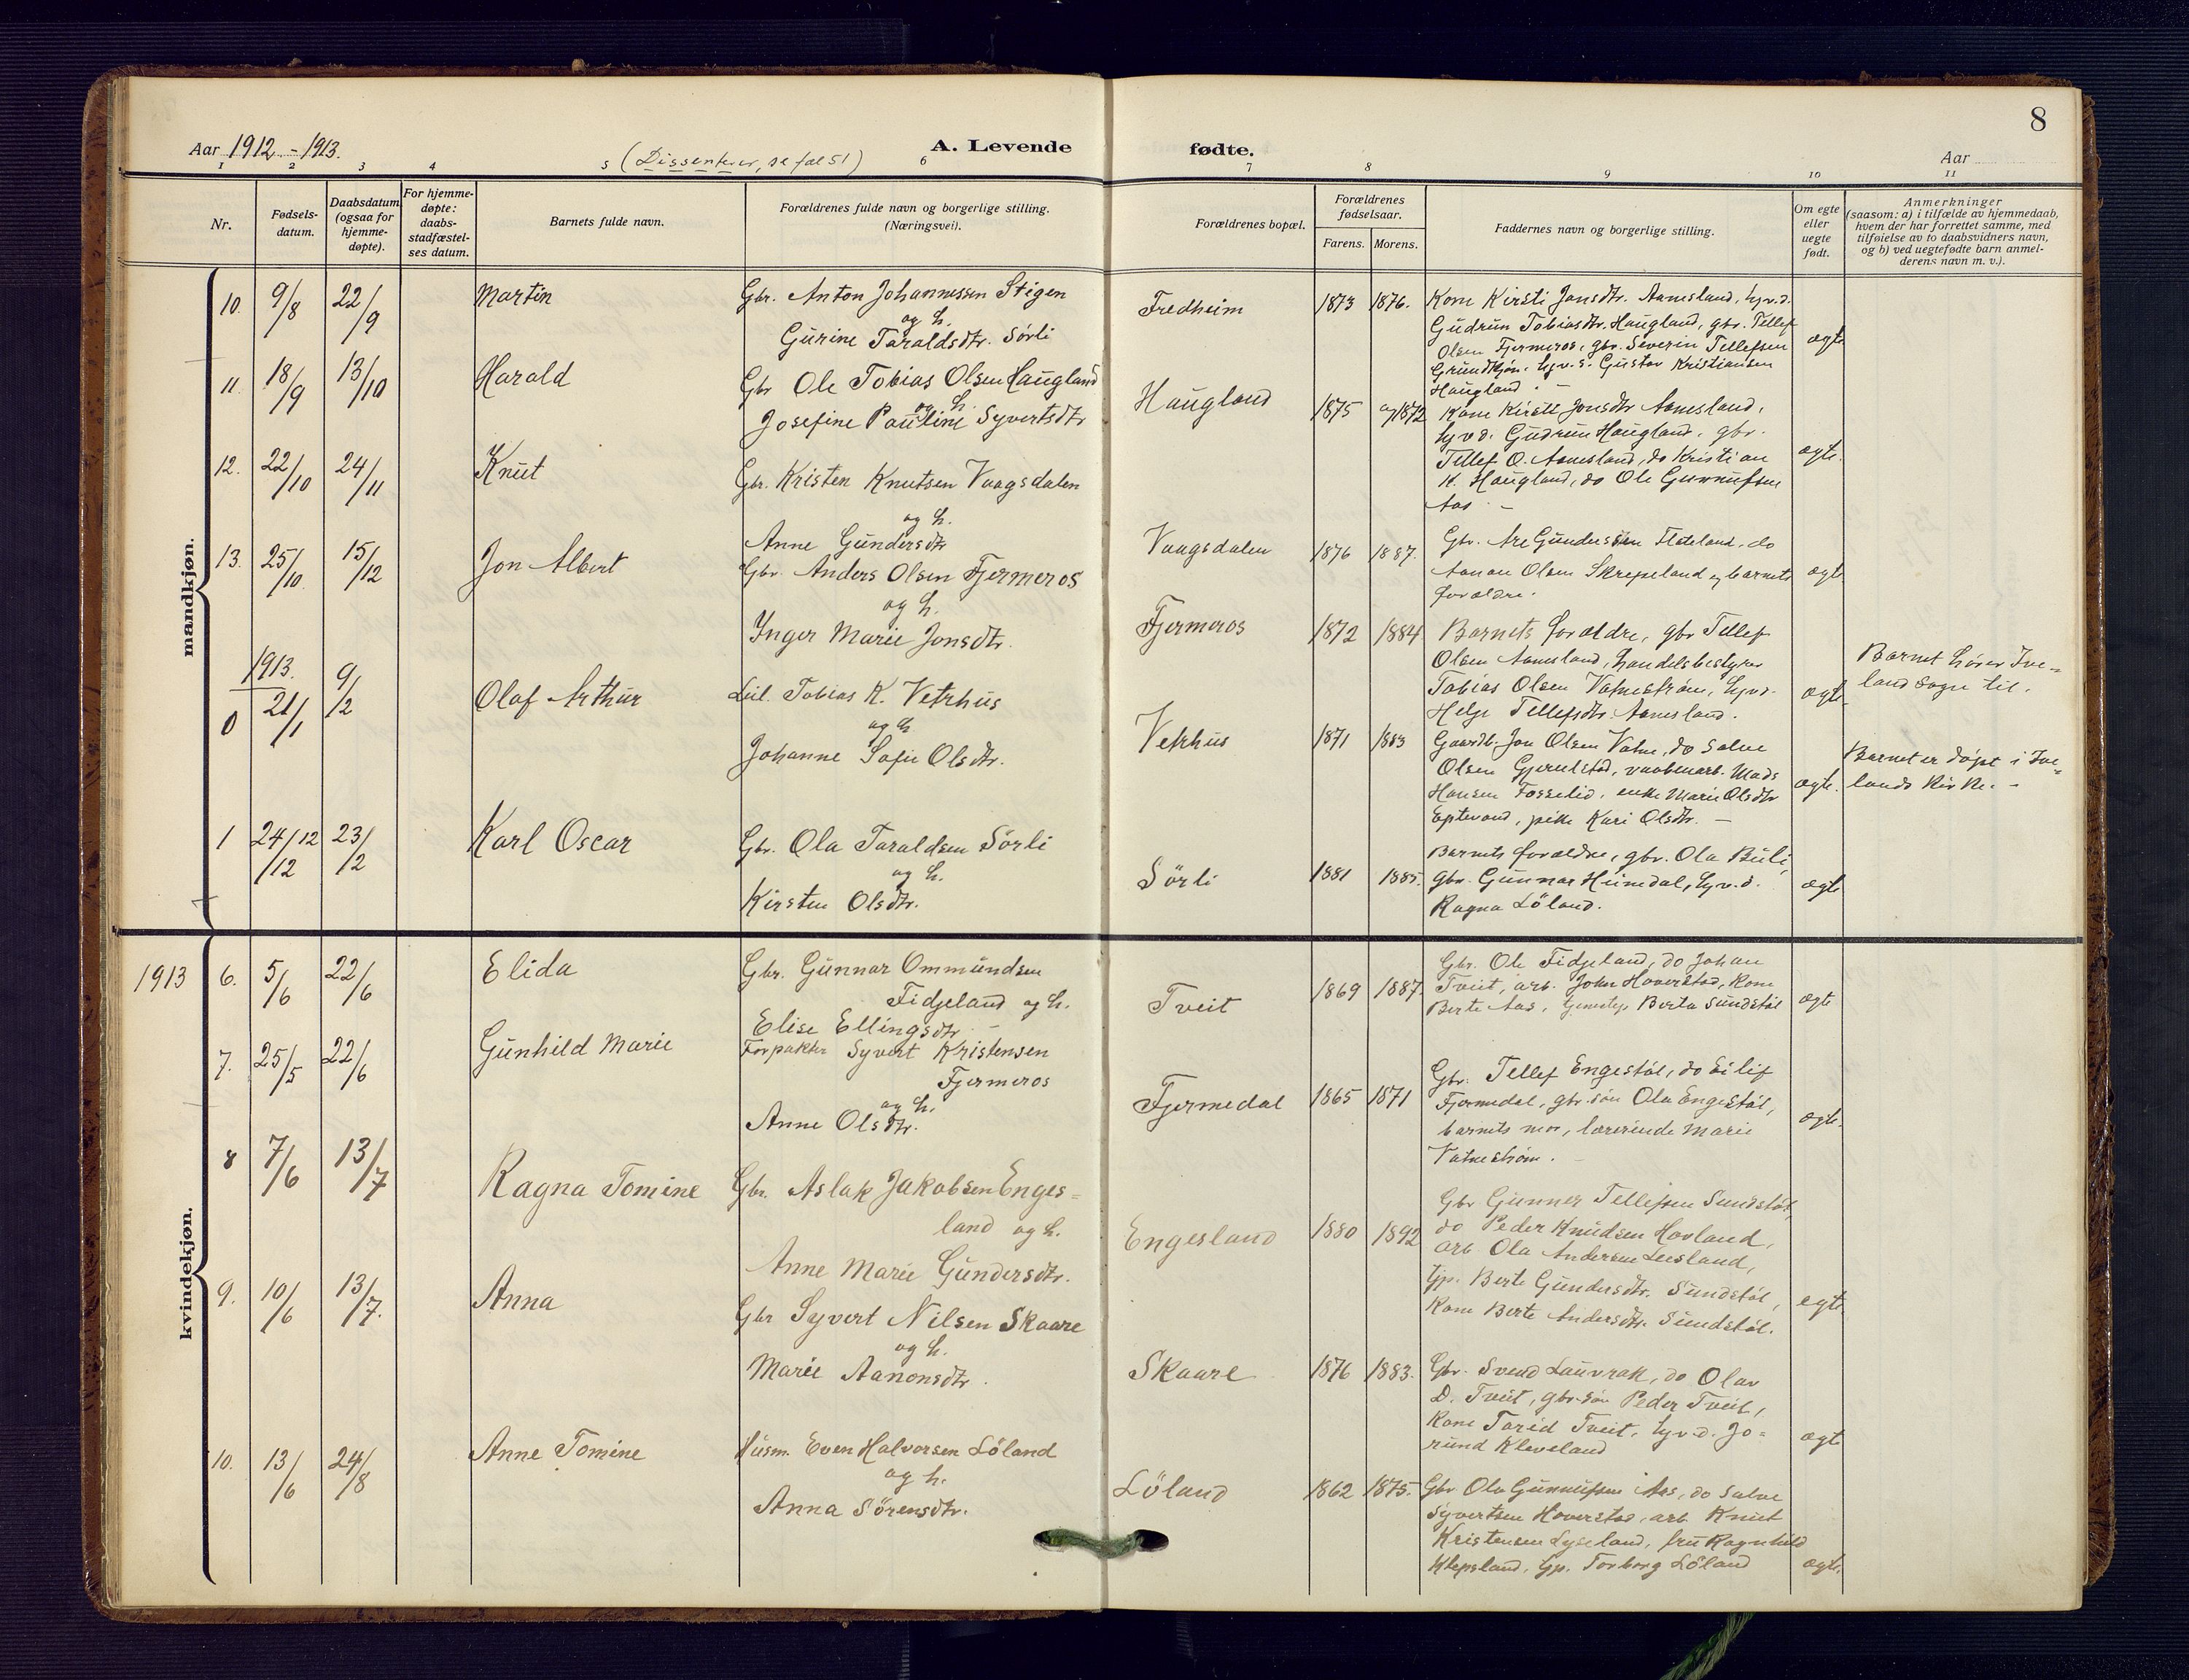 8
Aar 1912 - 1913.
(Dissenterer, se fol 51)
A. Levende
fødte.
Aar
1 2 3 4 5 6 7 8 9 10 11
Nr.
Fødsels-datum.
Daabsdatum (ogsaa for hjemme-døpte).
For hjemme-døpte: daabs-stadfæstel-ses datum.
Barnets fulde navn.
Forældrenes fulde navn og borgerlige stilling. (Næringsvei).
Forældrenes bopæl.
Forældrenes fødselsaar.
Farens. Morens.
Faddernes navn og borgerlige stilling.
Om egte eller uegte født.
Anmerkninger
(saasom: a) i tilfælde av hjemmedaab,
hvem der har forrettet samme, med
tilføielse av to daabsvidners navn,
og b) ved uegtefødte barn anmel-
derens navn m. v.).
mandkjøn.
10. 9/8 22/9 Martin
Gbr. Anton Johannessen Stigen
og h.
Gurine Taraldsdtr. Sørli
Fredheim 1873 1876.
Kone Kirsti Jonsdtr. Aamesland, hv.d.
Gudrun Tobiasdtr. Haugland, gbr. Tellef
Olsen Fjermeros, gbr. Severin Tellefsen
Gustav Kristiansen
Haugland.
ægte
11. 18/9 13/10 Harald
Gbr Ole Tobias Olsen Haugland
og h.
Josefine Pauline Syvertsdtr
Haugland 1875 og 1872
Kone Kirsti Jonsdtr Aamesland,
Gudrun Haugland, gbr.
Tellef O. Aamesland, do Kristian
K. Haugland, do Ole Gunnufsen
Aas -
ægte.
12. 22/10 24/11 Knut
Gbr. Kristen Knutsen Vaagsdalen
og h.
Anne Gundersdtr
Vaagsdalen 1876 1887.
Gbr. Are Gundersen Flateland, do
Aanon Olsen Skrepeland og barnets
forældre.
ægte
13. 25/10. 15/12 Jon Albert
Gbr. Anders Olsen Fjermeros
og h.
Inger Marie Jonsdtr.
Fjermeros 1872 1884
Barnets forældre, gbr Tellef
Olsen Aamesland, handelsbestyrer
Tobias Olsen Vatnestrøm,
Helge Tellefsdtr. Aamesland.
ægte
Barnet hører Ive-
land sogn til.
1913.
0 21/1 9/2 Olaf Arthur
Leil. Tobias K. Vetrhus
og h
Johanne Sofie Olsdtr.
Vetrhus 1871 1883
Gaardb. Jon Olsen Vatne, do Salve
Olsen Gjerulstad, vaabenarb. Mads
Hansen Fosselid, enke Marie Olsdtr
Eptevand, pike Kari Olsdtr. -
ægte.
Barnet er døpt i Ive-
lands kirke. -
1 24/12 12 23/2 Karl Oscar
Gbr. Ola Taraldsen Sørli
og h.
Kirsten Olsdtr.
Sörli 1881 1885.
Barnets forældre, gbr. Ola Büli,
gbr. Gunnar Heimdal, hv.d.
Ragna Löland.
ægte
kvindekjøn.
1913 6. 5/6 22/6 Elida
Gbr. Gunnar Ommundsen
Fidjeland og h.
Elise Ellingsdtr -
Tveit 1869 1887.
Gbr. Ole Fidjeland, do Johan
Tveit, arb. John Hoverstad, kone
Berte Aas, Berta Sundstøl
ægte
7. 25/5 22/6 Gunhild Marie
Forpakter Syvert Kristensen
Fjermeros
og h.
Anne Olsdtr.
Fjermedal 1865 1871
Gbr. Tellef Engestøl, do Eilif
Fjermedal, gbr.søn Ola Engestøl,
barnets mor, lærerinde Marie
Vatnestrøm. -
ægte.
8 7/6 13/7 Ragna Tomine
Gbr. Aslak Jakobsen Enges-
land og h.
Anne Marie Gundersdtr.
Engesland 1880 1892
Gbr Gunner Tellefsen Sundstøl,
do Peder Knudsen Hovland,
arb Ola Andersen Leesland,
Gp. Berte Gundersdtr. Sundstøl,
Kone Berte Andersdtr. Sundstøl.
egte
9. 10/6 13/7. Anna
Gbr Syvert Nilsen Skaare
og h.
Marie Aanonsdtr.
Skaare 1876 1883.
Gbr. Svend Lauvrak, do Olav
D. Tveit, gbr.søn Peder Tveit,
Kone Torid Tveit, hv.d. Jo-
rund Kleveland
ægt
10. 13/6 24/8 Anne Tomine
Husm. Even Halvorsen Löland
og h.
Anna Sörensdtr.
Löland 1862 1875.
Gbr Ola Gunnufsen Aas, do Salve
Syvertsen Hoverstad, arb Knut
Kristensen Lyseland, fru Ragnhild
Klepsland, Gp. Torborg Löland
ægte.